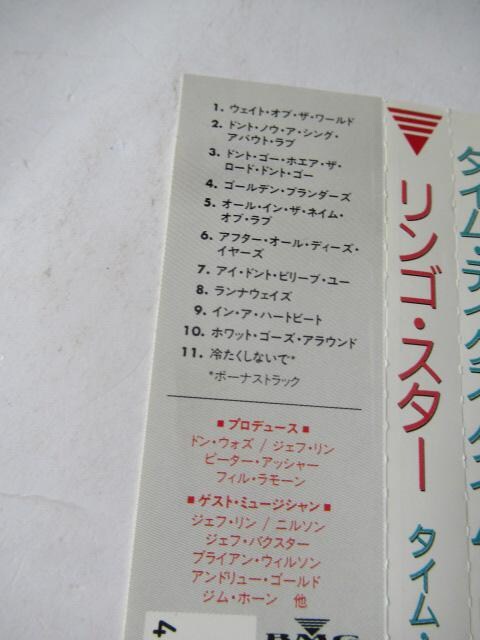 1. ウェイト・オブ・ザ・ワールド
2. ドント・ノウ・ア・シング・
アバウト・ラブ
3. ドント・ゴー・ホエア・ザ・
ロード・ドント・ゴー
4. ゴールデン・ブランダーズ
5. オール・イン・ザ・ネイム・
オブ・ラブ
6. アフター・オール・ディーズ・
イヤーズ
7. アイ・ドント・ビリーブ・ユー
8. ランナウェイズ
9. イン・ア・ハートビート
10. ホワット・ゴーズ・アラウンド
11. 冷たくしないで*
*ボーナストラック
■プロデュース■
ドン・ウォズ / ジェフ・リン
ピーター・アッシャー
フィル・ラモーン
■ゲスト・ミュージシャン■
ジェフ・リン / ニルソン
ジェフ・バクスター
ブライアン・ウィルソン
アンドリュー・ゴールド
ジム・ホーン 他
BMG
4
リンゴ・スター タイム